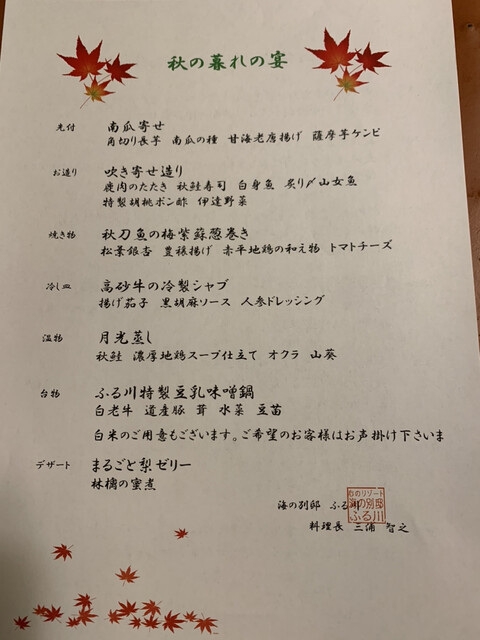 秋の暮れの宴
先付 南瓜寄せ
角切り長芋 南瓜の種 甘海老唐揚げ 薩摩芋ケンピ
お造り 吹き寄せ造り
鹿肉のたたき 秋鮭寿司 白身魚 炙り〆山女魚
特製胡桃ポン酢 伊達野菜
焼き物 秋刀魚の梅紫蘇葱巻き
松葉銀杏 豊禄揚げ 赤平地鶏の和え物 トマトチーズ
冷し皿 高砂牛の冷製シャブ
揚げ茄子 黒胡麻ソース 人参ドレッシング
温物 月光蒸し
秋鮭 濃厚地鶏スープ仕立て オクラ 山葵
台物 ふる川特製豆乳味噌鍋
白老牛 道産豚 茸 水菜 豆苗
白米のご用意もございます。ご希望のお客様はお声掛け下さいま
デザート まるごと梨ゼリー
林檎の蜜煮
海の別邸 ふる川
料理長 三浦 智之
海の別邸
ふる川